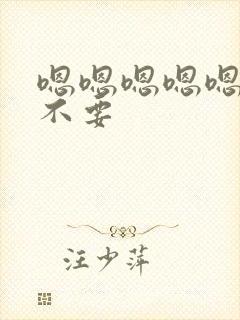 嗯嗯嗯嗯嗯
不要
汪少萍